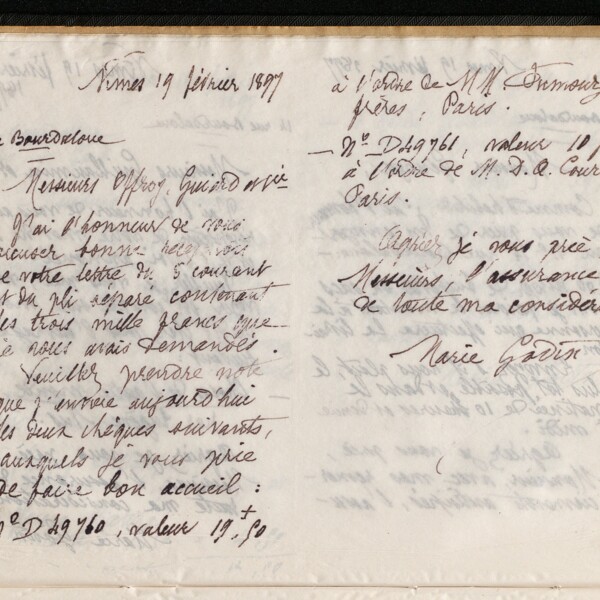 Nîmes 19 février 1897
Bourdaloue
Messieurs Offroy, Guiard et Cie
J'ai l'honneur de vous
accuser bonne réception
de votre lettre du 5 courant
et du pli séparé contenant
les trois mille francs que
je vous avais demandés.
Veuillez prendre note
que j'envoie aujourd'hui
les deux chèques suivants,
auxquels je vous prie
de faire bon accueil :
No D 49760, valeur 19f,50
à l'ordre de MM
frères, Paris.
— No D49761, valeur 10 f
à l'ordre de M. D. A. Cour
Paris.
Agréez je vous prie
Messieurs, l'assurance
de toute ma considér
Marie Godin